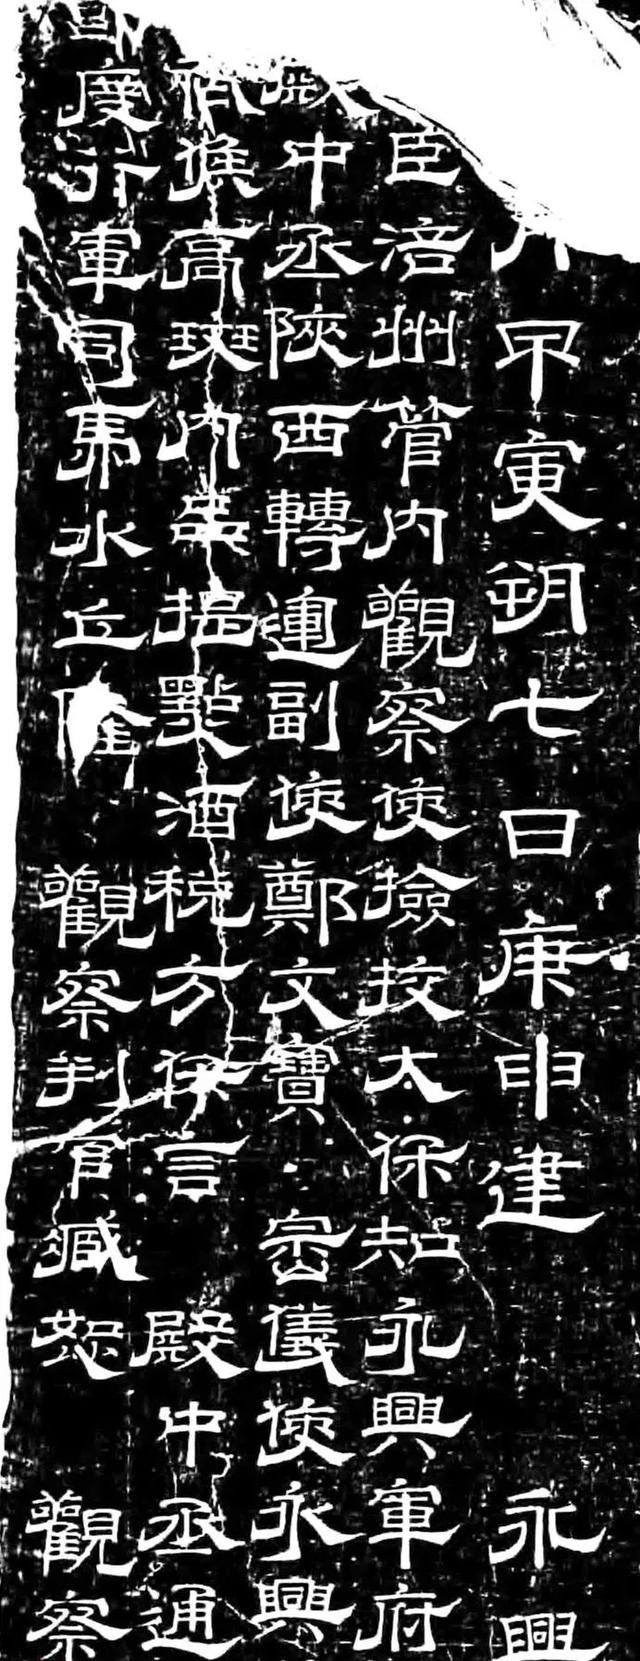 甲寅朔七日庚申建 永興
臣涪州管内觀察使檢校太保知永興軍府
中丞陝西轉運副使鄭文寶 崇儀使永興
祗候高班内品提點酒税方保言 殿中丞通
度行軍司馬水丘隆 觀察判官臧恕 觀察